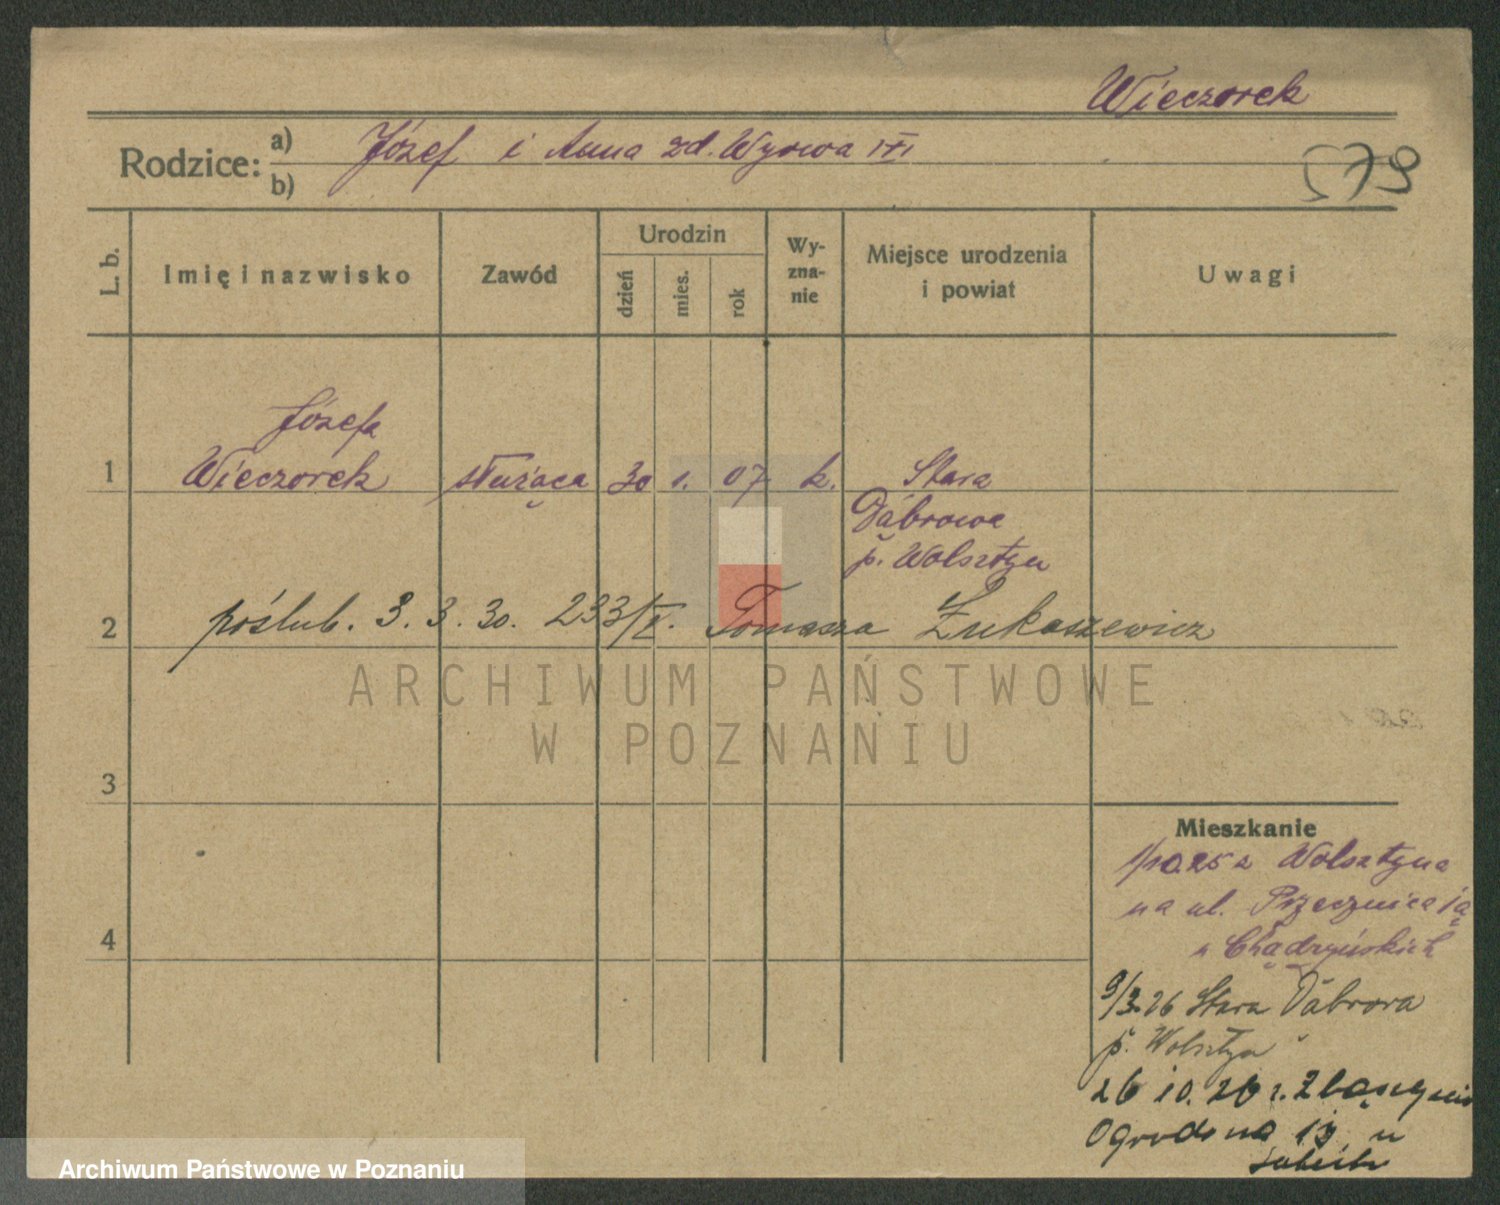 Wieczorek
Rodzice: a) Józef i Anna zd. Wyrwa
b)
579
L. b.
Imię i nazwisko
Zawód
Urodzin
dzień
mies.
rok
Wy-
zna-
nie
Miejsce urodzenia
i powiat
Uwagi
Józefa
1 Wieczorek służąca 30 1. 07 k. Stara
Dąbrowa
p. Wolsztyn
2 poślub. 3. 3. 30. 233/II. Tomasza Łukaszewicz
ARCHIWUM PAŃSTWOWE
W POZNANIU
3
4
Mieszkanie
1/10.25 z Wolsztyna
na ul. Przecznica
u Chądzyńskich
9/3.26 Stara Dąbrowa
p. Wolsztyn
26 10. 26 r. Zbąszynia
Ogrodowa 19 u
Archiwum Państwowe w Poznaniu